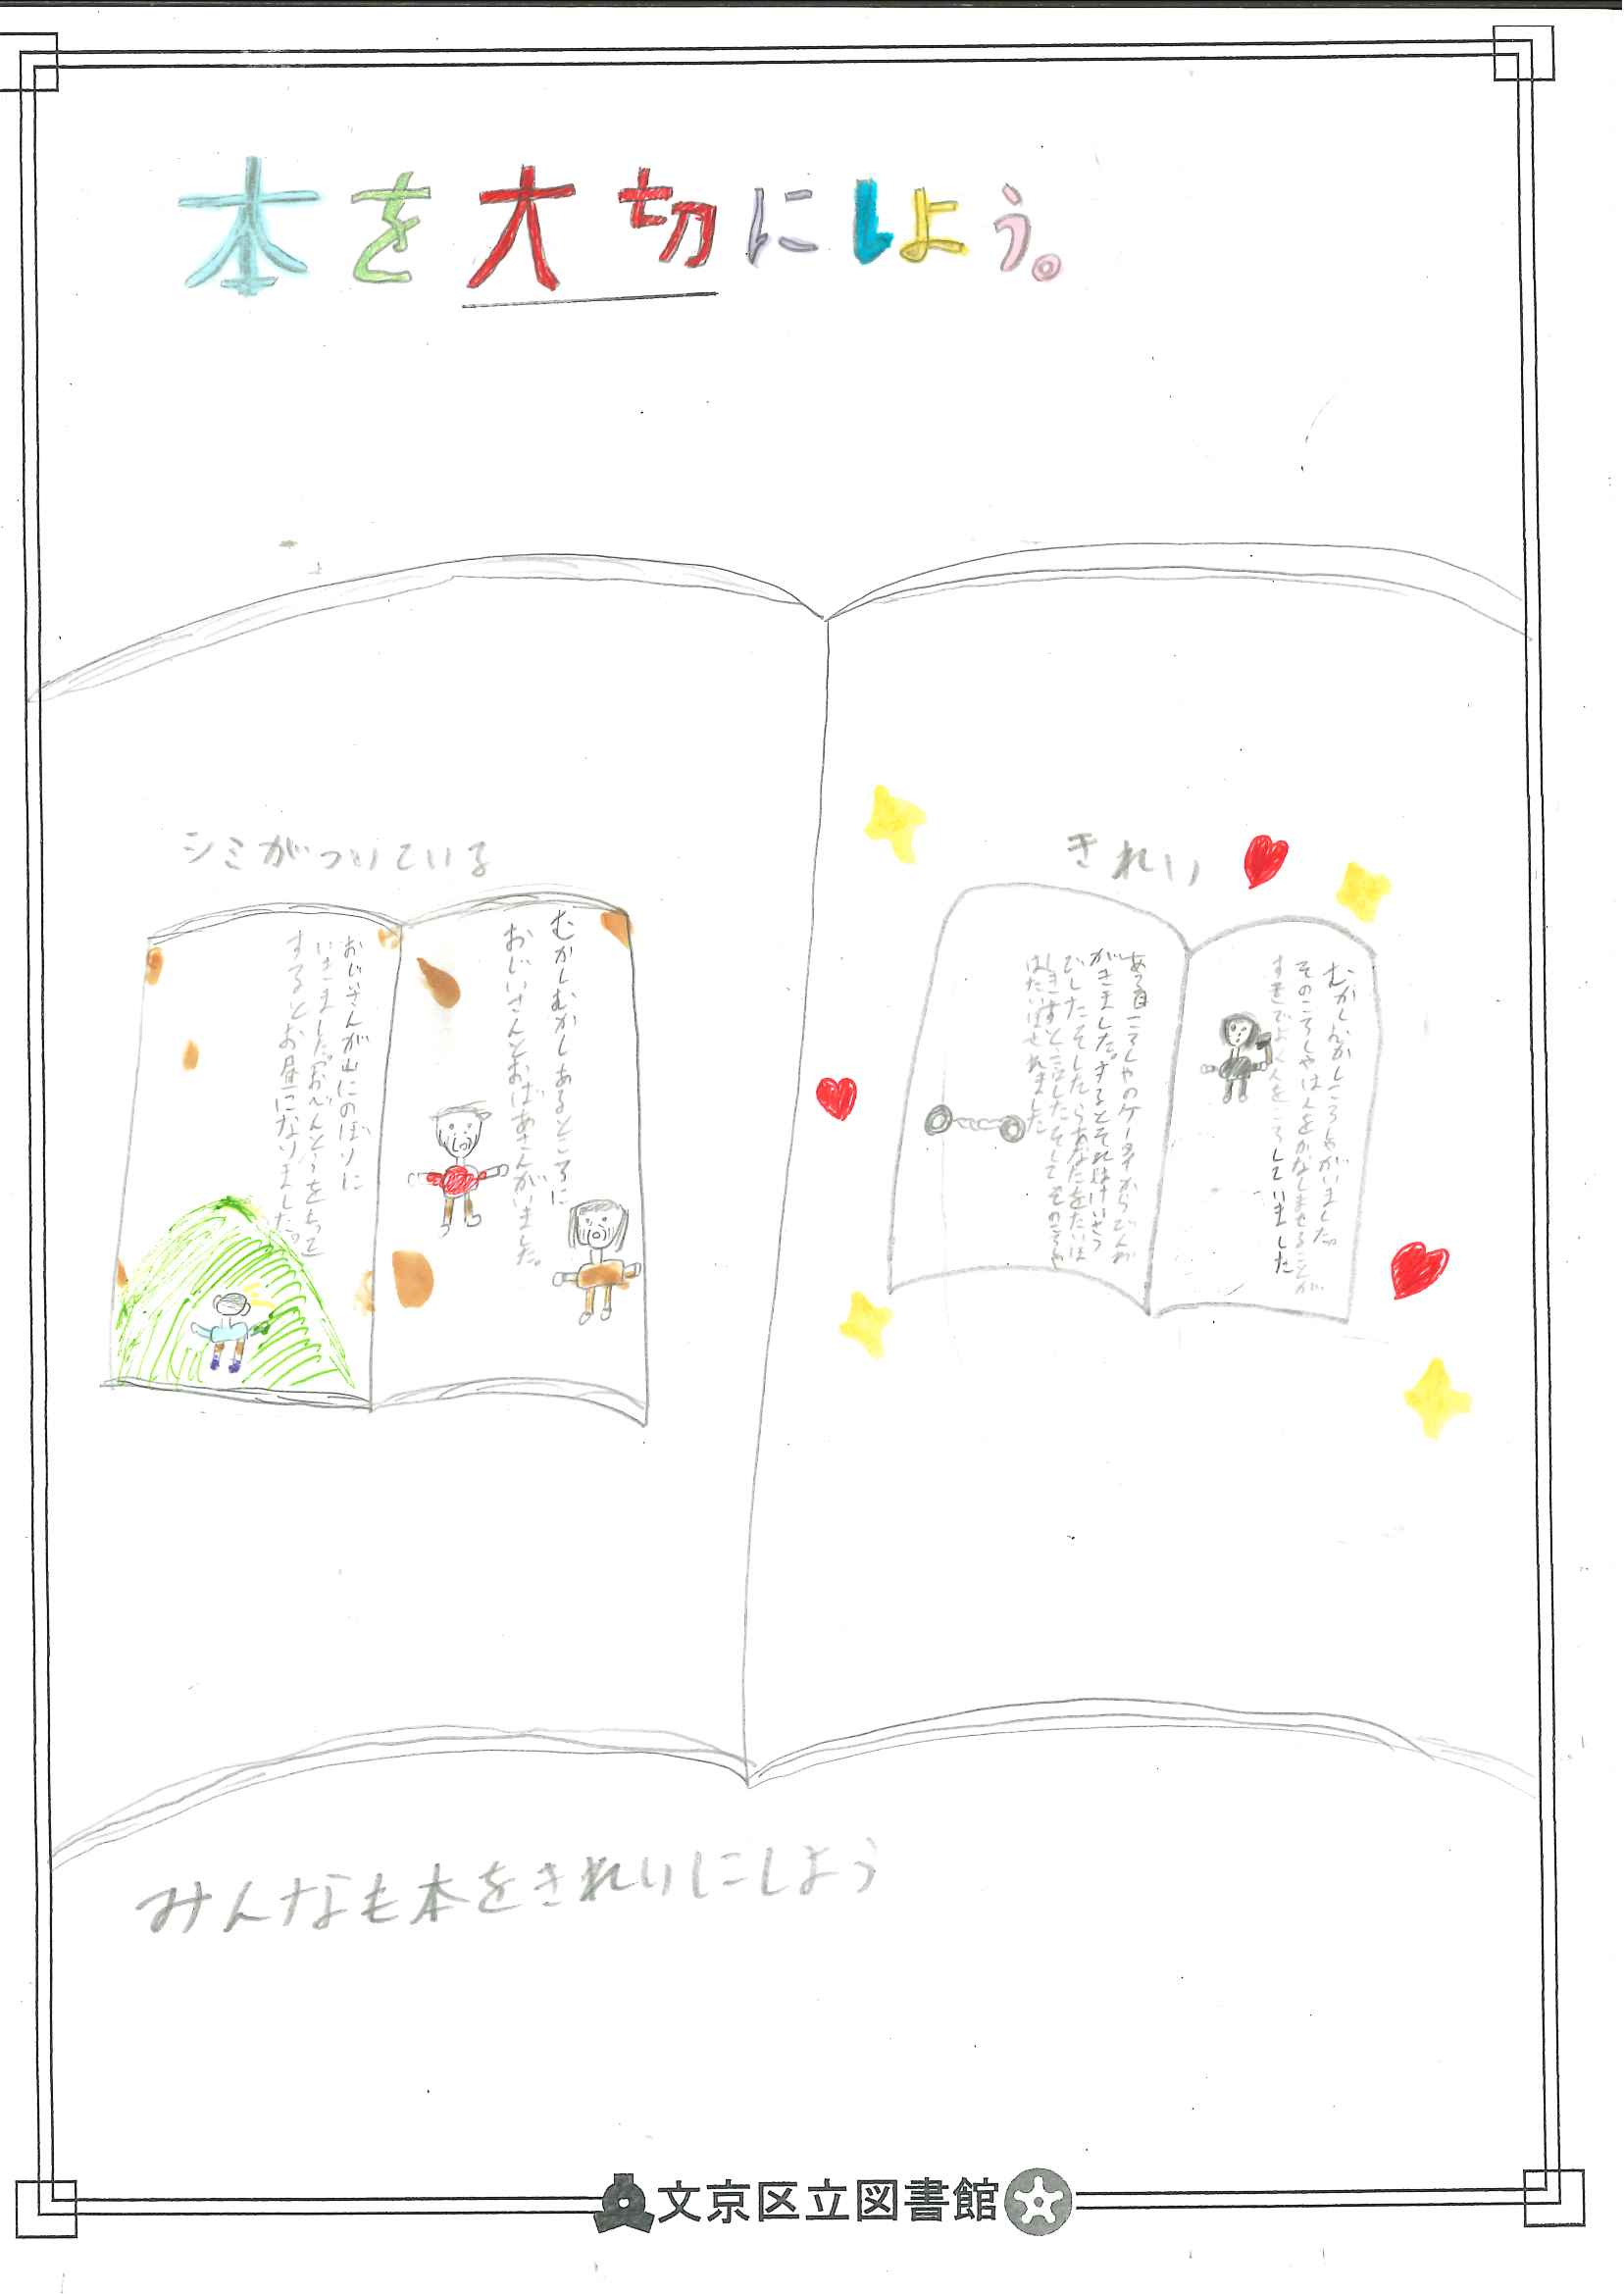 本を大切にしよう。
シミがついている
むかしむかしあるところに
おじいさんとおばあさんがいました。
おじいさんが山にのぼりに
いきました。おべんとうをもって
するとお昼になりました。
きれい
むかしむかしころしやがいました。
そのころしやは人をかなしませることが
すきでよく人をころしていました
ある日ころしやのケータイからでんわ
がきました。するとそれはけいさつ
でしたそしたらあなたをたいほ
しますといいましたそしてそのころしや
はたいほされました
みんなも本をきれいにしよう
文京区立図書館